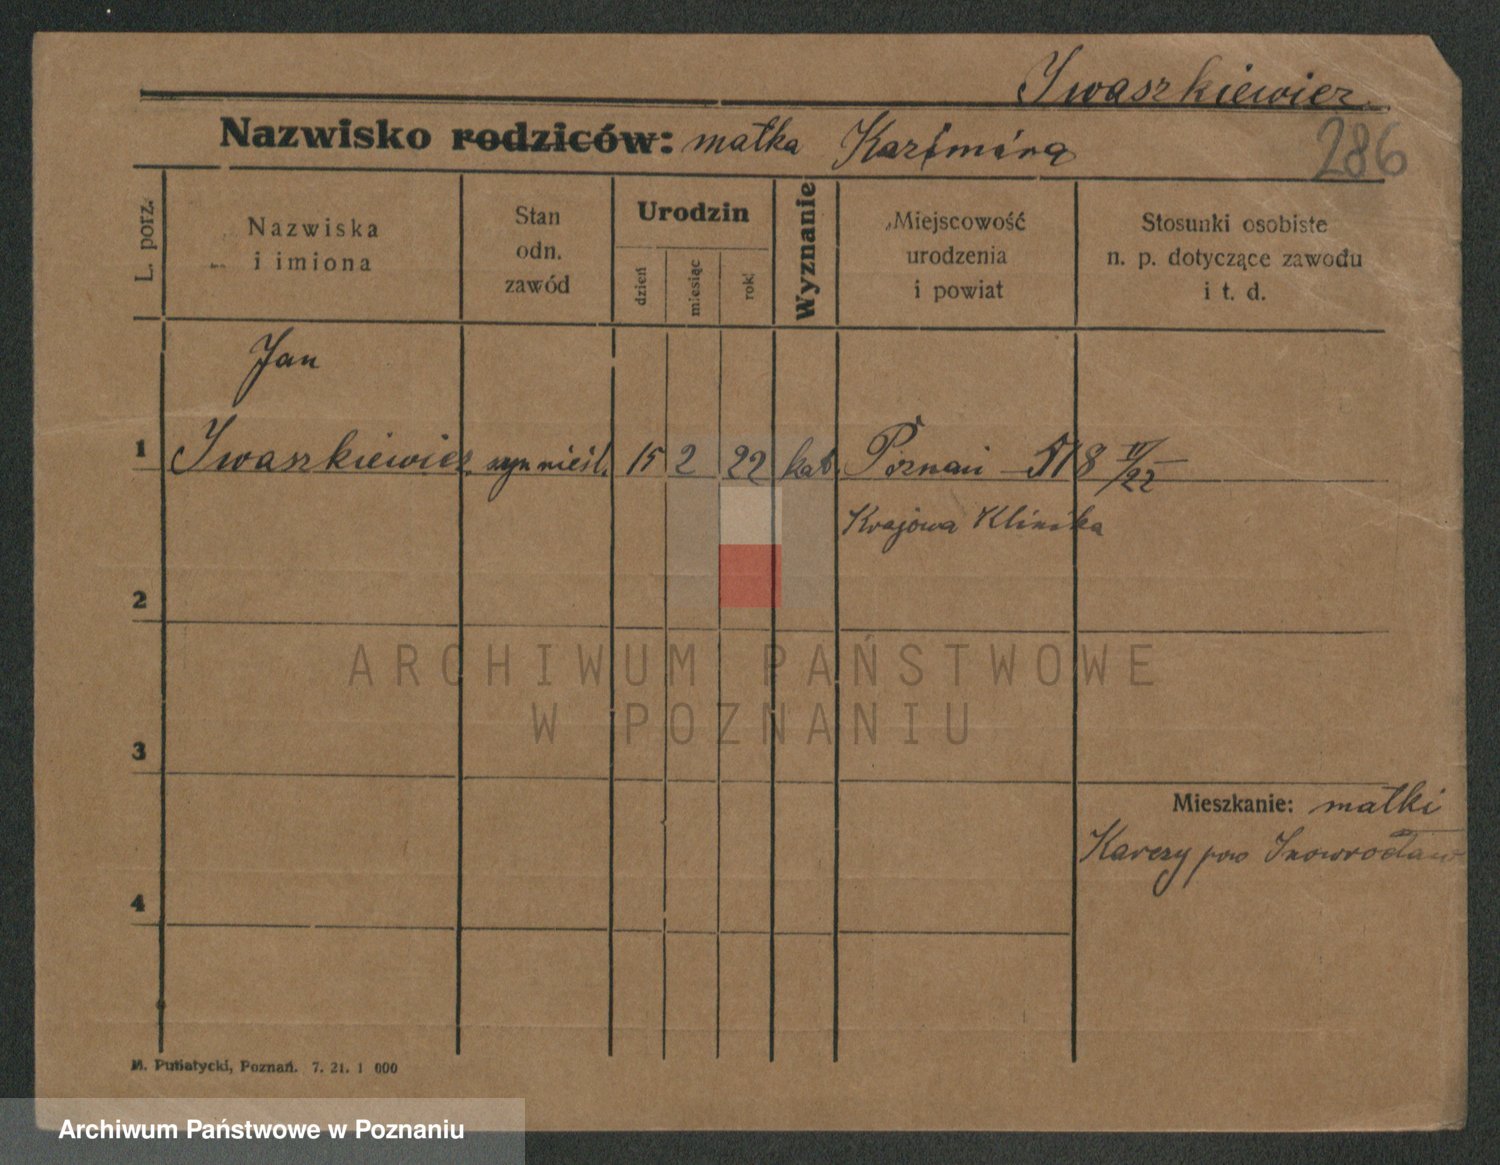 Iwaszkiewicz.
Nazwisko rodziców: matka Kazimira
286
L. porz.
Nazwiska
i imiona
Stan
odn.
zawód
Urodzin
dzień
miesiąc
rok
Wyznanie
Miejscowość
urodzenia
i powiat
Stosunki osobiste
n. p. dotyczące zawodu
i t. d.
Jan
1 Iwaszkiewicz syn nieśl. 15 2 22 kat. Poznań 518 II/22
Krajowa Klinika
2
3
Mieszkanie: matki
pow Inowrocław
4
M. Putiatycki, Poznań. 7. 21. 1 000
ARCHIWUM PAŃSTWOWE
W POZNANIU
Archiwum Państwowe w Poznaniu